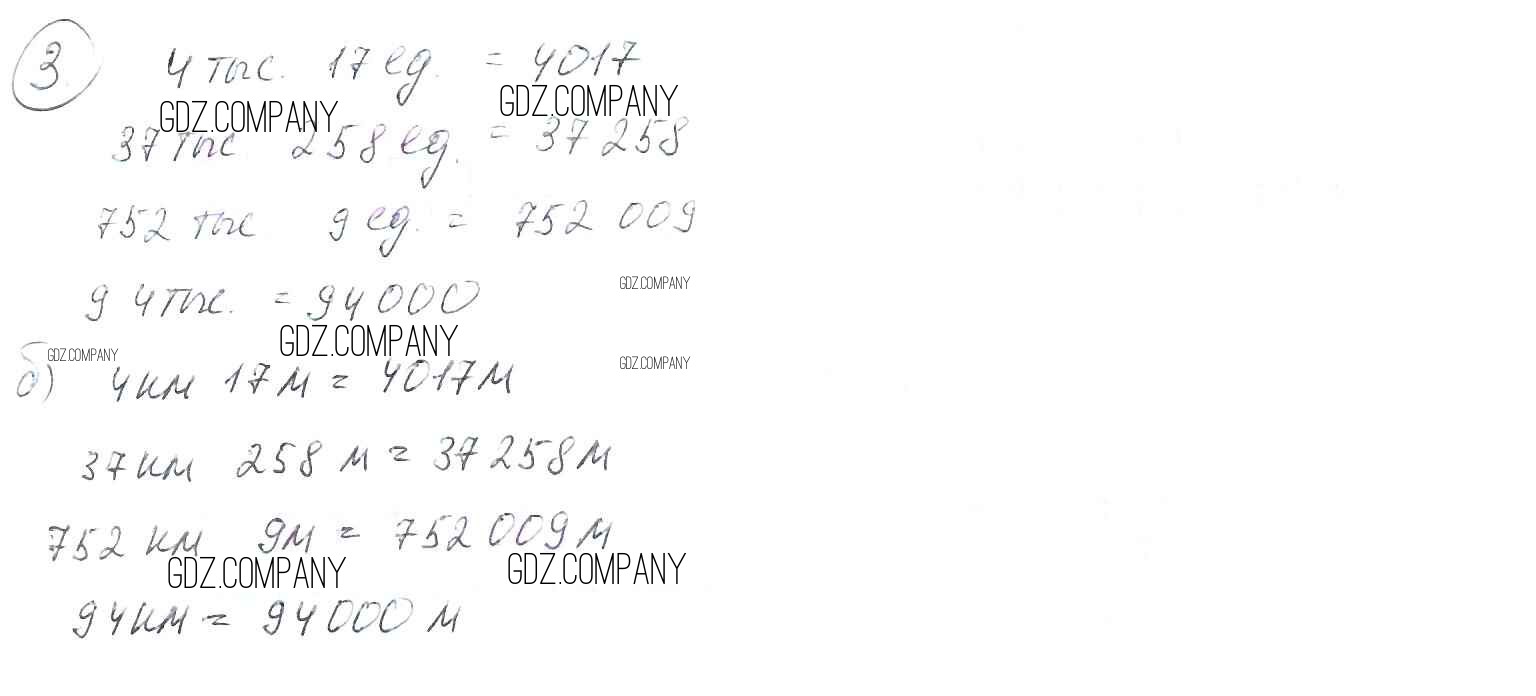 3 4 тыс. 17 ед. = 4017
GDZ.COMPANY GDZ.COMPANY
37 тыс 258 ед. = 37 258
752 тыс 9 ед. = 752 009
GDZ.COMPANY
9 4 тыс. = 94 000
GDZ.COMPANY
GDZ.COMPANY GDZ.COMPANY
б) 4 км 17 м = 4017 м
37 км 258 м = 37 258 м
752 км 9 м = 752 009 м
GDZ.COMPANY GDZ.COMPANY
94 км = 94 000 м